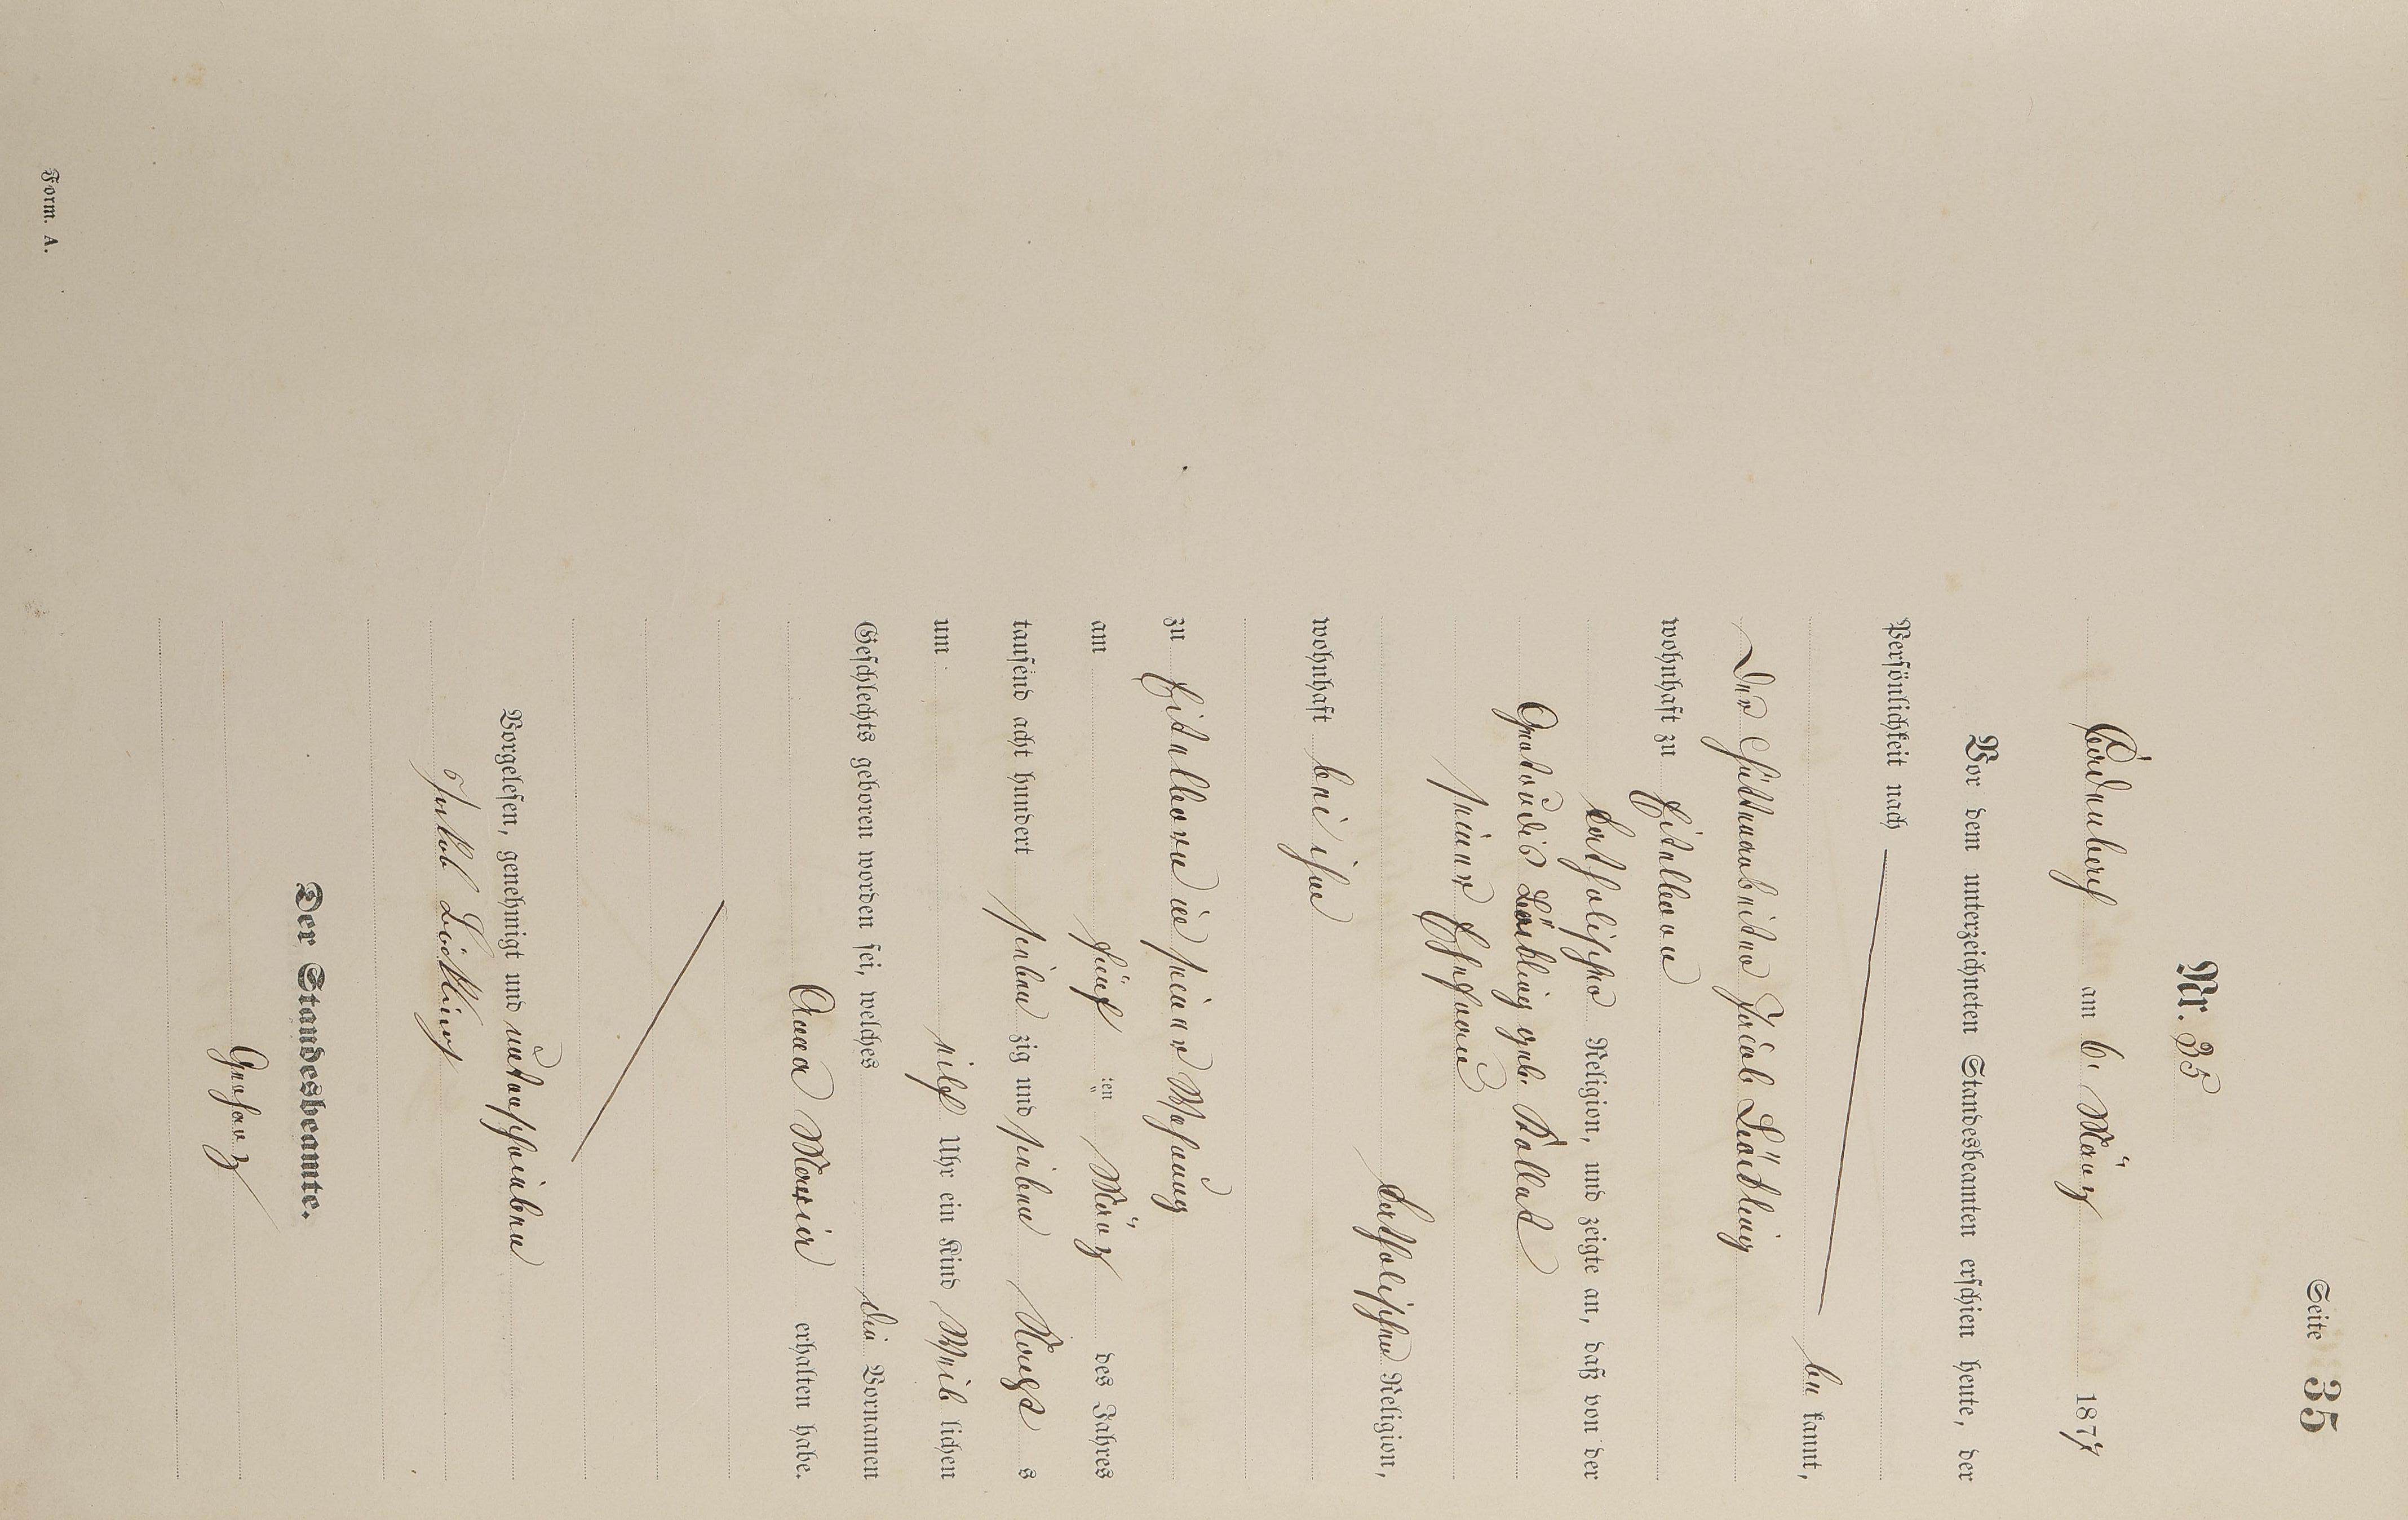 Seite 35
Nr. 35
am 6. März 1877
Vor dem unterzeichneten Standesbeamten erschien heute, der
Persönlichkeit nach
be kannt,
Der Hüttenarbeiter Jacob
wohnhaft zu
katholischer Religion, und zeigte an, daß von der
geb.
seiner Ehefrau
katholischer Religion,
wohnhaft bei ihm
zu in seiner Wohnung
am fünf ten März des Jahres
tausend acht hundert sieben zig und sieben Nachts
um elf Uhr ein Kind Weib lichen
Geschlechts geboren worden sei, welches die Vornamen
Anna Maria erhalten habe.
Vorgelesen, genehmigt und unterschrieben
Jakob
Der Standesbeamte.
Form. A.